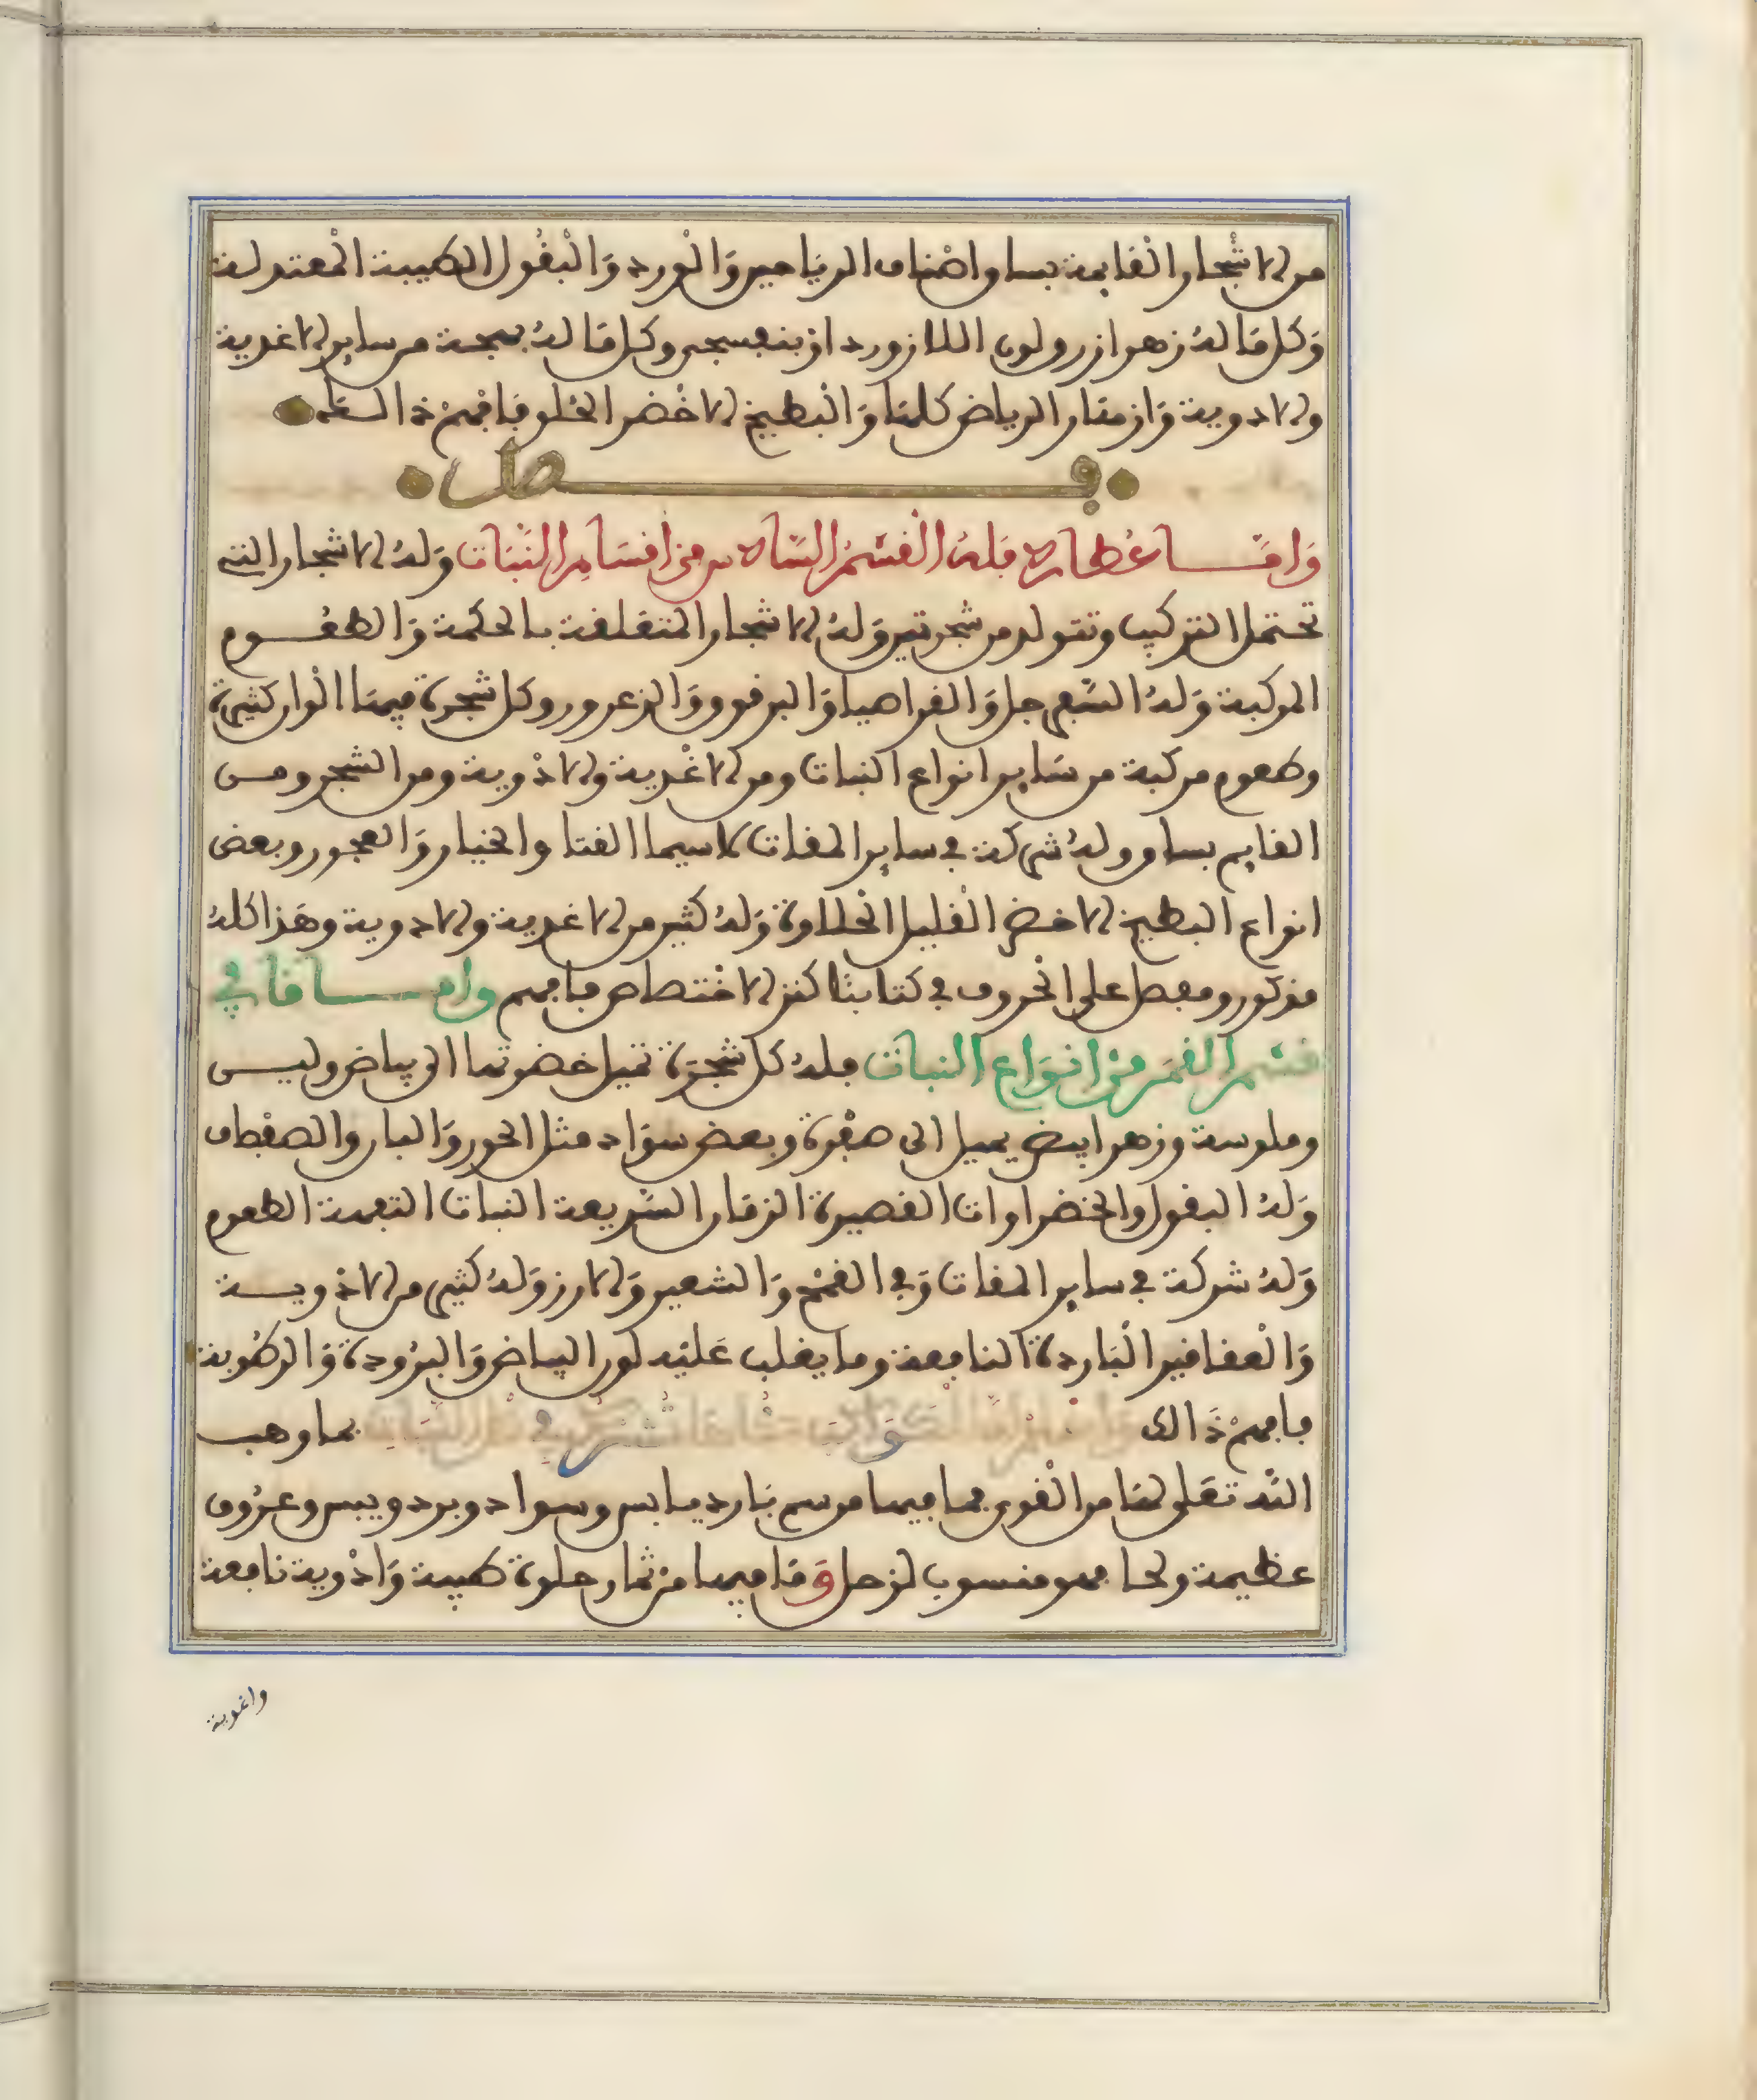 من الاشجار القايمة بساق واصناف الرياحين وَالْورد وَالْبقُول الطيبة الْمعتدلة
وَكل مَا لهُ زهر ازرق ولون اللازورد او بنفسجى وكل مَا لهُ بهجة من ساير الاغدية
والادوية وَازمَار الرياض كلهَا وَالْبطيخ الاخْضر الحُلو فَافهمْ ذالك
فصل
وَامَّا عُطارد فَلهُ الْقسْمُ السَّادس منَ اقسَام النَّبَات وَلهُ الاشجار التى
تحتمل التركيب وتتولد من شجرتين وَلهُ الاشجار المتعلقة بالحكمة وَالطعُوم
المركبة وَلهُ السَّفرجل وَالقراصيا وَالبرقوق وَالزعرور وكل شجرة فيهَا الْوان كثيرة
وطعوم مركبة من سَاير انواع النبات ومن الاغْدية والادْوية ومن الشجر ومن
القايم بساق ولهُ شركة فى ساير المقات لاسيما القثا والخيار وَالعجور وبعض
انواع البطيخ الاخضر القليل الحلاوة وَلهُ كثير من الاغدية والادوية وهَذا كلهُ
مذكور ومفصل على الحروف فى كتابنا كنز الاختصاص فافهم وامَا مَا فى
قسْم القمَر منْ انوَاع النبات فلهُ كل شجرَة تميل خضرتها الى بياض وليس
وملوسة وزهر ابيض يميل الى صفْرة وبعض سوَاد مثل الحور وَالبان والصفْصاف
وَلهُ البقول والخضراوات القصيرة الزمَان السَّريعة النبات التفهة الطعوم
وَلهُ شركة فى ساير المقات وَفى القمْح وَالشعير وَالارز وَلهُ كثير من الادْوية
وَالْعقاقير الْبَاردة النافعة وما يغلب عَليْه لون البياض وَالبرُودة وَالرطُوبة
فافهمْ ذَالك بما وهب
اللَّه تعَلى لهَا من الْقوى فما فيها من سم بَارد يابس وسواد وبرد ويبس وعرُوق
عظيمة ولحا فهو منسوب لزحل وَمَا فيها منْ ثمار حلوة طيبة وَادْوية نافعة
واغدية